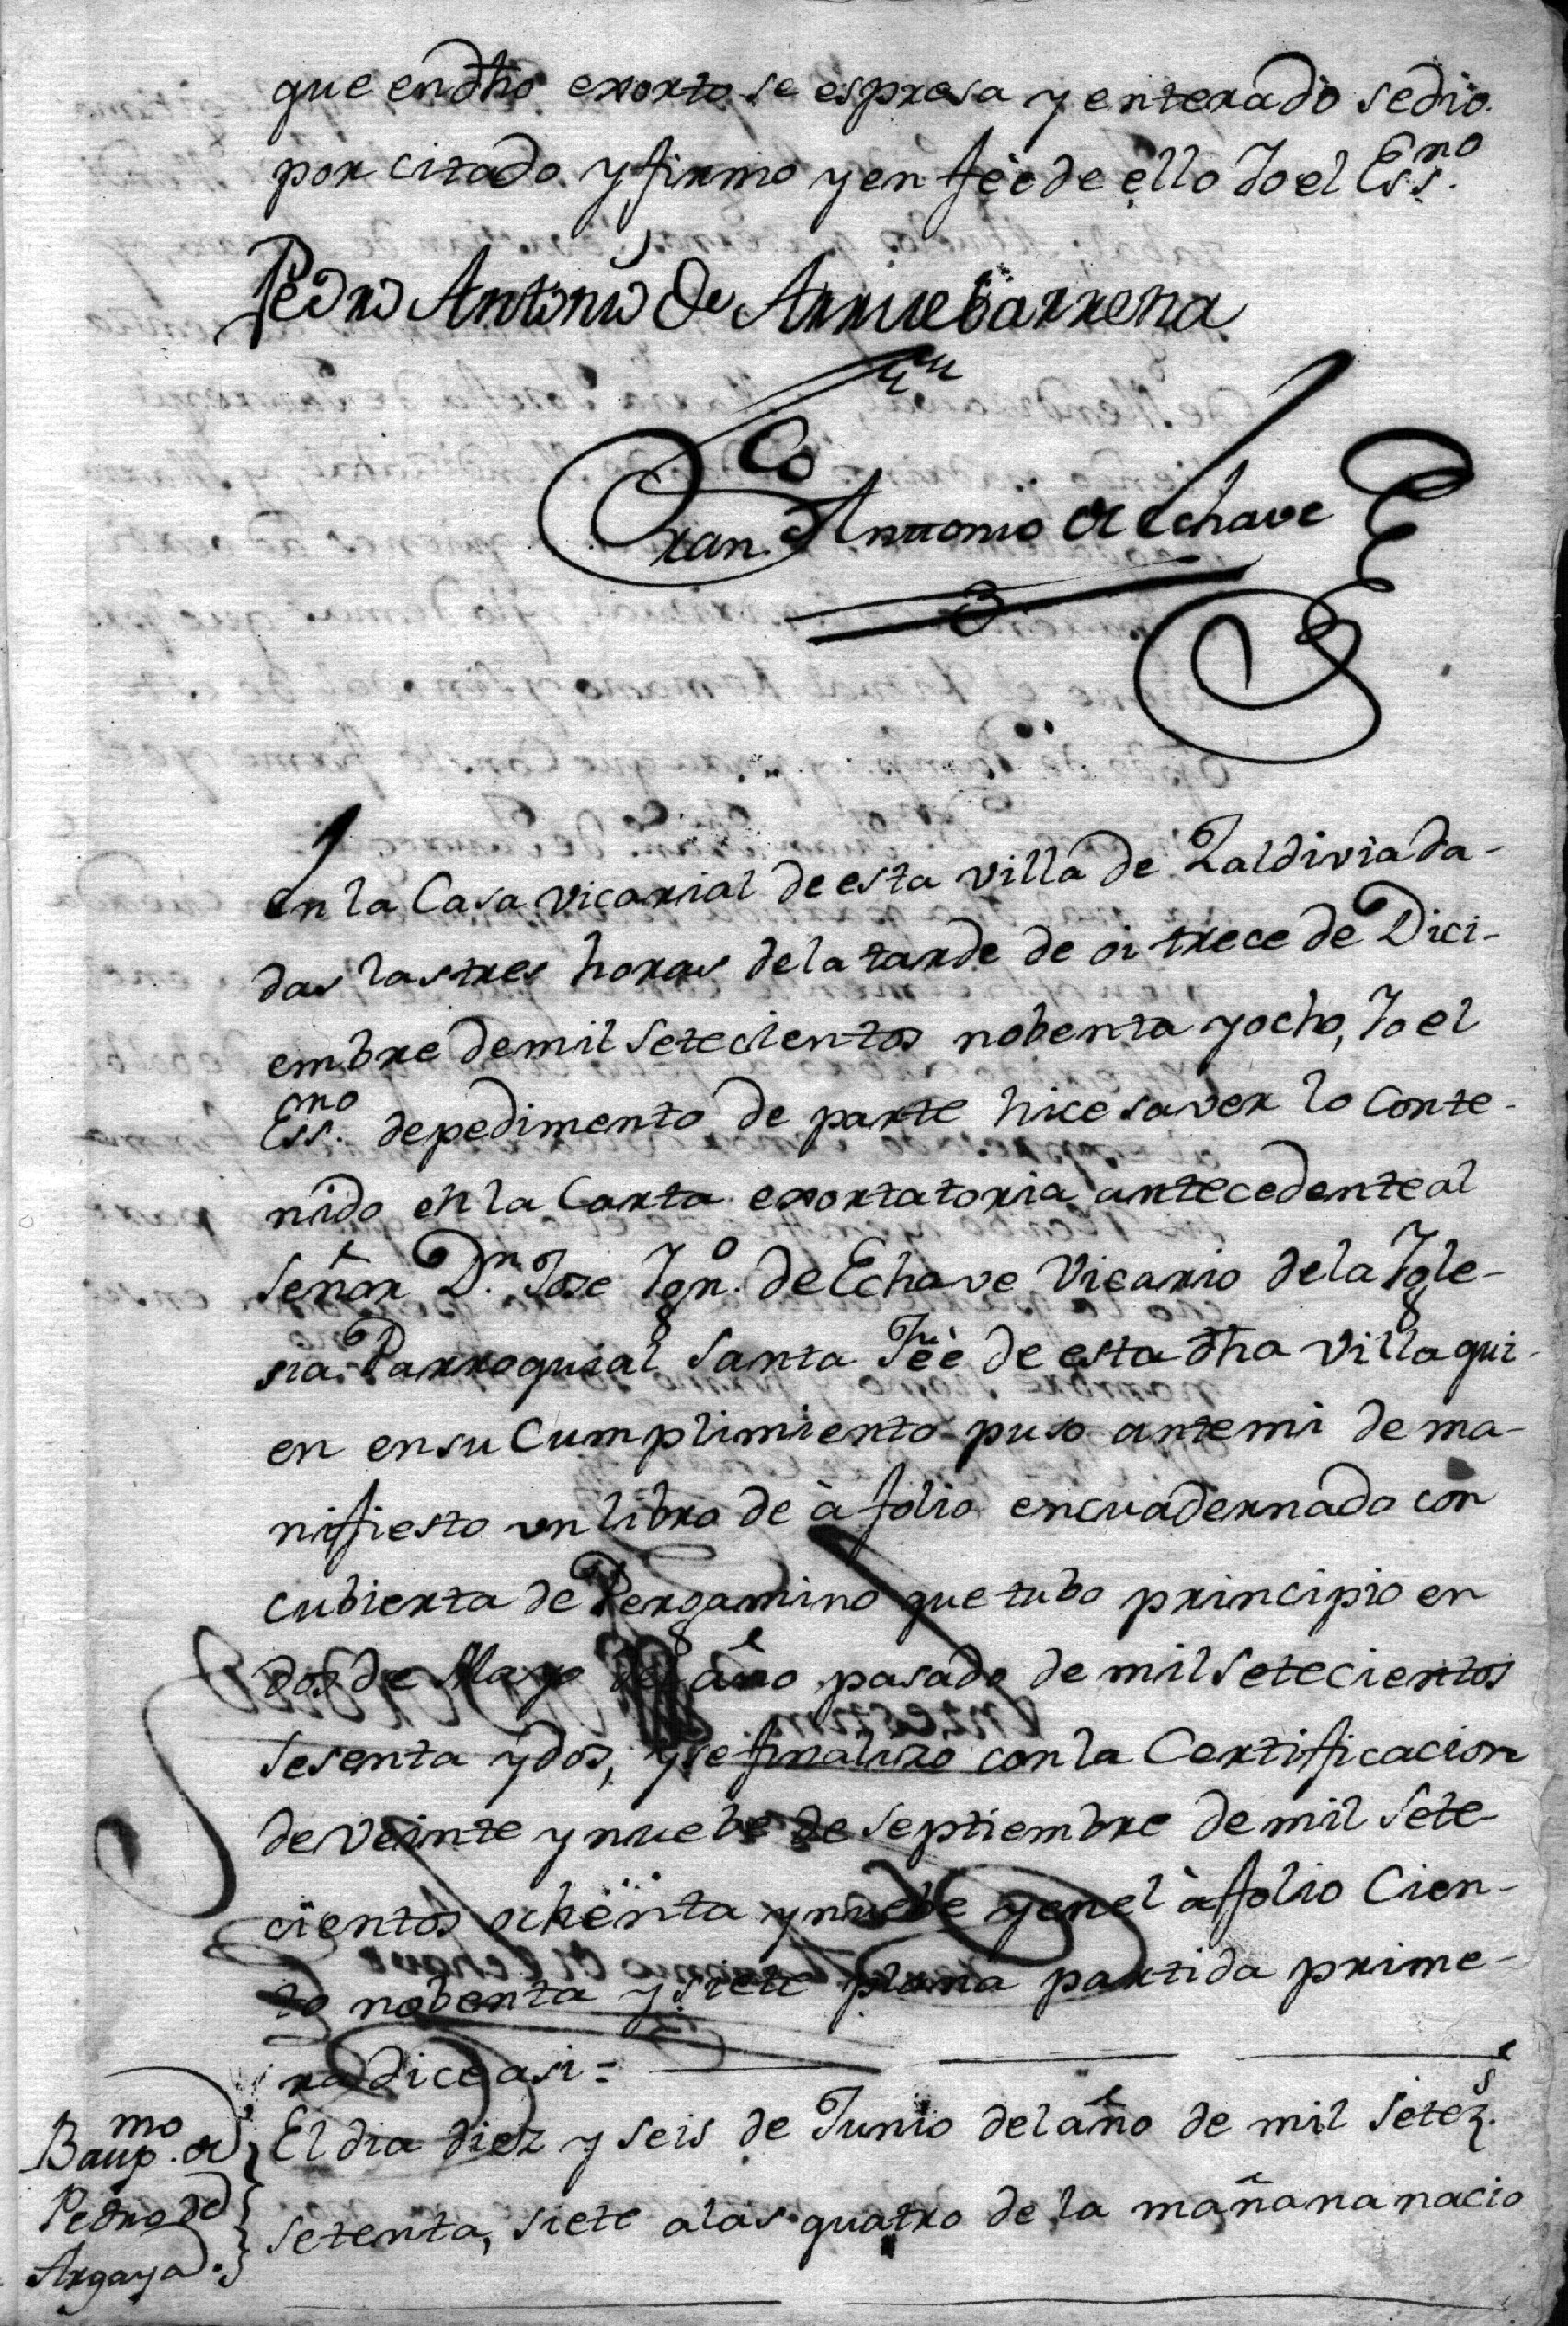 que en dho exorto se espresa y enterado se dio
por citado y firmo y en feè de ello Yo el Ess.no
Pedro Antonio de Arruebarrena
Fran.co Antonio de Echave
En la Casa vicarial de esta villa de Zaldivia da-
das las tres horas de la tarde de oi trece de Dici-
embre de mil setecientos nobenta y ocho, Yo el
Ess.no de pedimento de parte hice saver lo conte-
nido en la Carta exortatoria antecedente al
Señor D.n Jose Ygn.o de Echave Vicario de la Ygle-
sia Parroquial Santa Feè de esta dha villa qui-
en en su Cumplimiento puso ante mi de ma-
nifiesto un libro de à folio encuadernado con
cubierta de Pergamino que tubo principio en
dos de Mayo del año pasado de mil setecientos
sesenta y dos, y se finalizo con la Certificacion
de veinte y nuebe de septiembre de mil sete-
cientos ochenta y nuebe y en el à folio Cien-
to nobenta y siete plana partida prime-
ra dice asi =
Baup.mo de
Pedro de
Argaya.
El dia diez y seis de Junio del año de mil setez.s
setenta, siete a las quatro de la mañana nacio